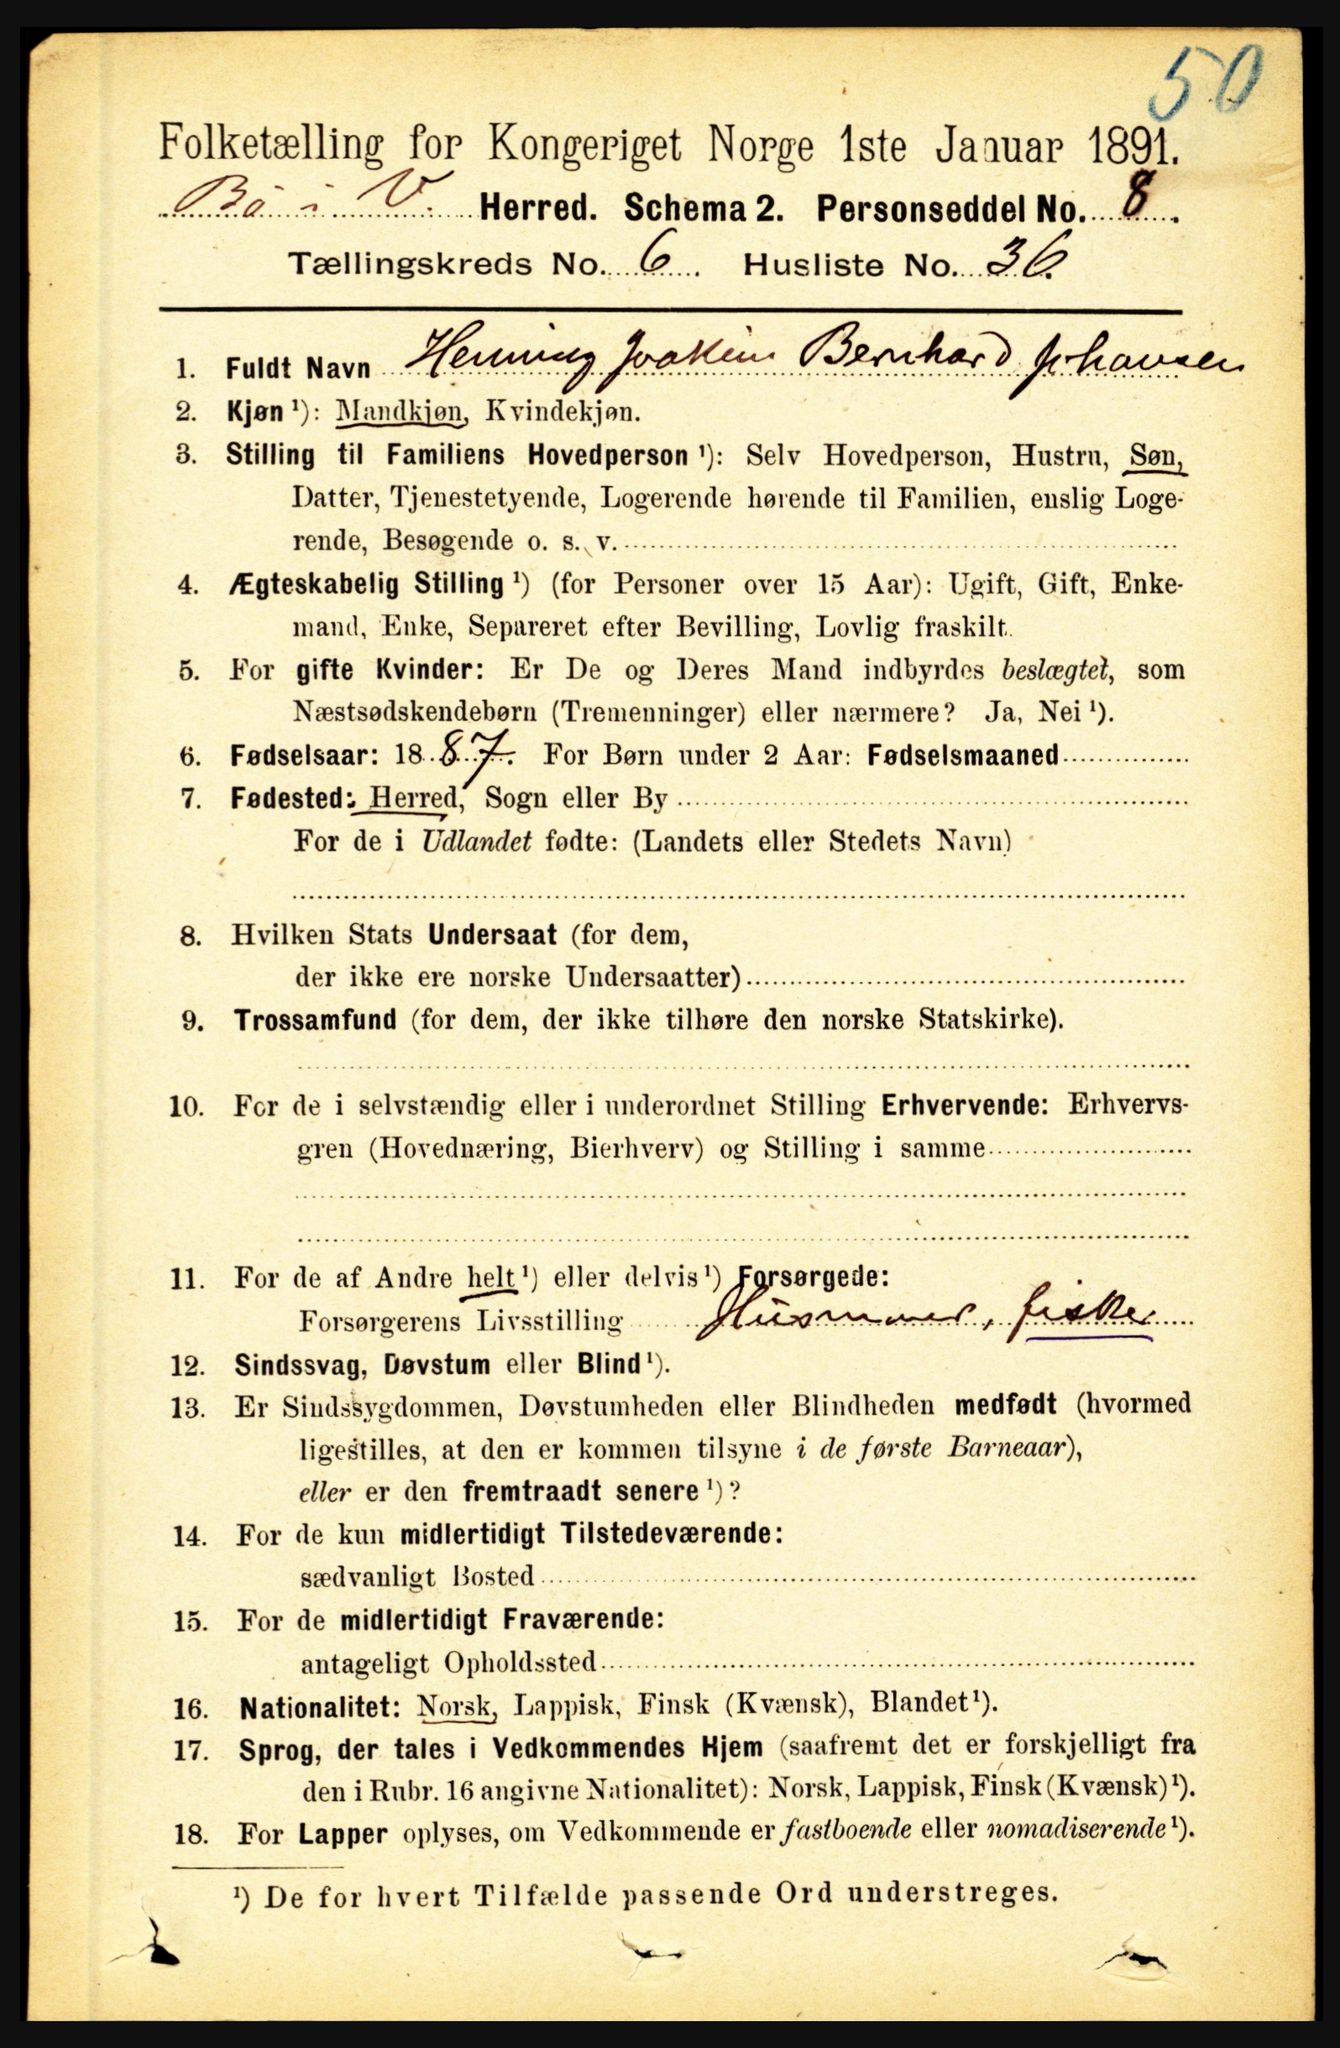 50
Folketælling for Kongeriget Norge 1ste Januar 1891.
Bö i V. Herred. Schema 2. Personseddel No. 8.
Tællingskreds No. 6. Husliste No. 36.
1. Fuldt Navn Henning Joakim Bernhard Johansen
2. Kjøn ¹): Mandkjøn, Kvindekjøn.
3. Stilling til Familiens Hovedperson ¹): Selv Hovedperson, Hustru, Søn,
Datter, Tjenestetyende, Logerende hørende til Familien, enslig Loge-
rende, Besøgende o. s. v.
4. Ægteskabelig Stilling ¹) (for Personer over 15 Aar): Ugift, Gift, Enke-
mand, Enke, Separeret efter Bevilling, Lovlig fraskilt.
5. For gifte Kvinder: Er De og Deres Mand indbyrdes beslægtet, som
Næstsødskendebørn (Tremenninger) eller nærmere? Ja, Nei ¹).
6. Fødselsaar: 1887. For Børn under 2 Aar: Fødselsmaaned
7. Fødested: Herred, Sogn eller By
For de i Udlandet fødte: (Landets eller Stedets Navn)
8. Hvilken Stats Undersaat (for dem,
der ikke ere norske Undersaatter)
9. Trossamfund (for dem, der ikke tilhøre den norske Statskirke).
10. For de i selvstændig eller i underordnet Stilling Erhvervende: Erhvervs-
gren (Hovednæring, Bierhverv) og Stilling i samme
11. For de af Andre helt ¹) eller delvis ¹) Forsørgede:
Forsørgerens Livsstilling Husmand, fisker
12. Sindssvag, Døvstum eller Blind ¹).
13. Er Sindssygdommen, Døvstumheden eller Blindheden medfødt (hvormed
ligestilles, at den er kommen tilsyne i de første Barneaar),
eller er den fremtraadt senere ¹)?
14. For de kun midlertidigt Tilstedeværende:
sædvanligt Bosted
15. For de midlertidigt Fraværende:
antageligt Opholdssted
16. Nationalitet: Norsk, Lappisk, Finsk (Kvænsk), Blandet ¹).
17. Sprog, der tales i Vedkommendes Hjem (saafremt det er forskjelligt fra
den i Rubr. 16 angivne Nationalitet): Norsk, Lappisk, Finsk (Kvænsk) ¹).
18. For Lapper oplyses, om Vedkommende er fastboende eller nomadiserende ¹).
¹) De for hvert Tilfælde passende Ord understreges.